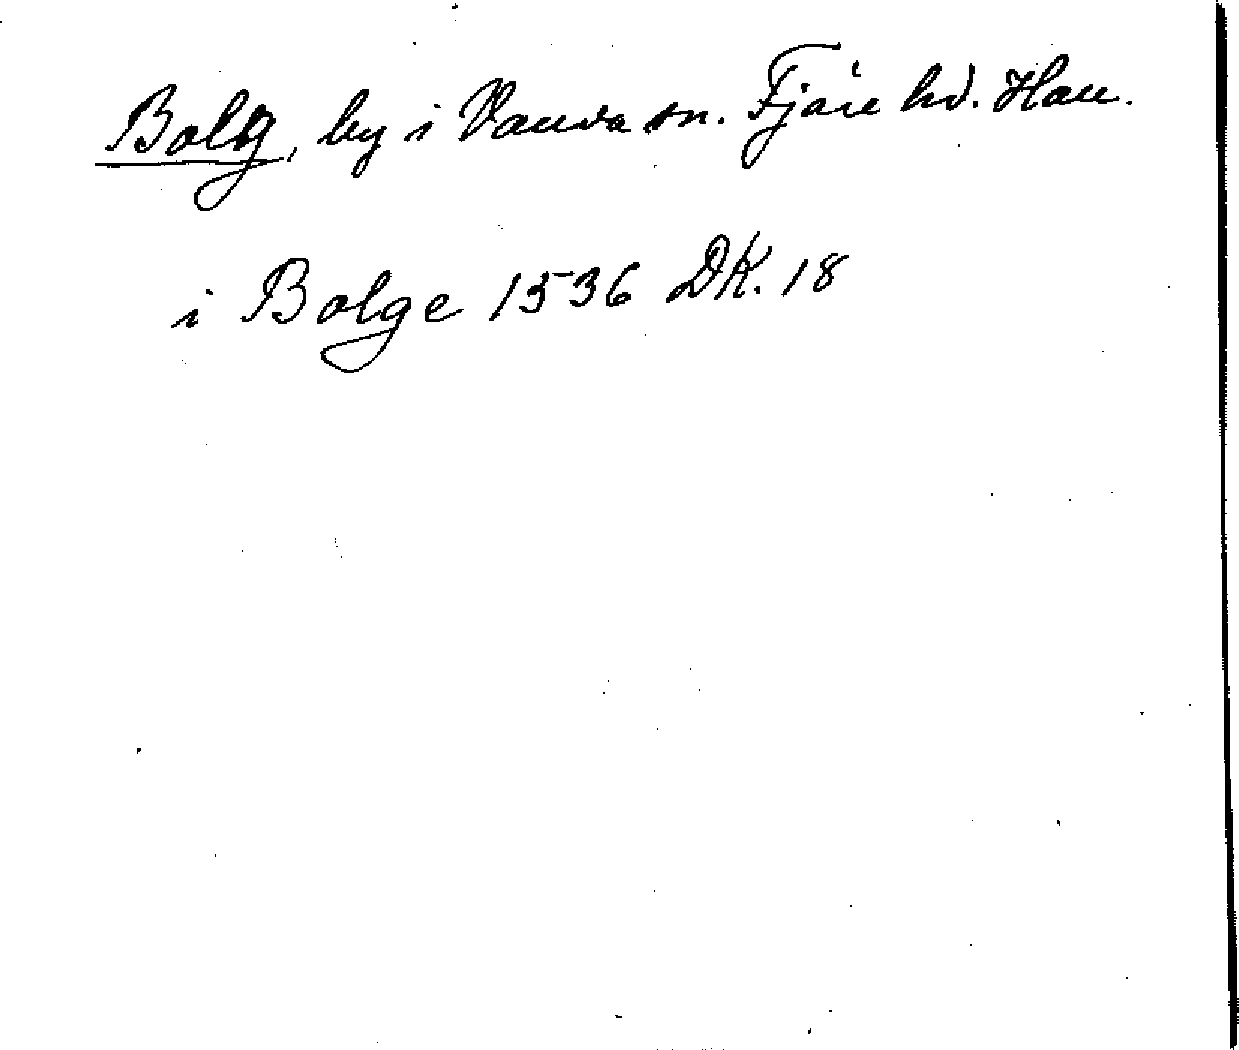 Bolg, by i Landa sn. Fjäre hd. Hall.
i Bolge 1536 DK. 18